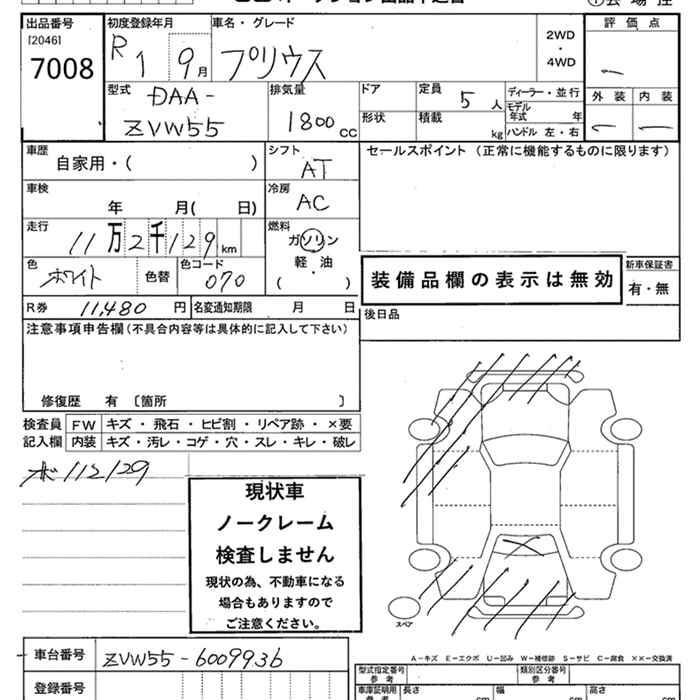 出品番号 初度登録年月 車名・グレード 評価点
[2046] R1 9月 プリウス 2WD
7008 ・
4WD
外装 内装
型式 排気量 ドア 定員 ディーラー・並行
DAA- 5人 モデル年式 年
ZVW55 1800CC 形状 積載 kg ハンドル 左・右
車歴 シフト セールスポイント(正常に機能するものに限ります)
自家用・( ) AT
車検 冷房
年 月( 日) AC
走行 燃料
11万2千129km ガソリン
軽・油
色 色替 色コード ( ・ )
ホワイト 070
装備品欄の表示は無効 新車保証書
有・無
R券 11,480円 名変通知期限 月 日 後日品
注意事項申告欄(不具合内容等は具体的に記入して下さい)
修復歴 有 〔箇所 〕
検査員 FW キズ・飛石・ヒビ割・リペア跡・×要
記入欄 内装 キズ・汚レ・コゲ・穴・スレ・キレ・破レ
ホ112129
現状車
ノークレーム
検査しません
現状の為、不動車になる
場合もありますので
ご注意ください。
スペア
A-キズ E-エクボ U-凹み W-補修跡 S-サビ C-腐食 ××-交換済
車台番号 ZVW55-6009936
型式指定番号 参考 類別区分番号 参考
登録番号
車庫証明用 参考 長さ cm 幅 cm 高さ cm